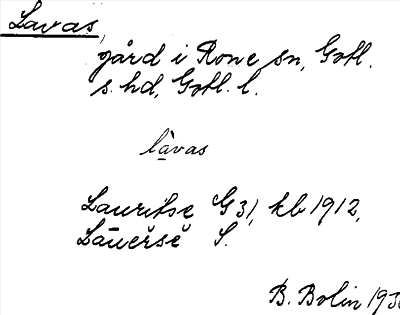 Lavas,
gård i Rone sn, Gotl.
s. hd, Gotl. l.
làvas
Lauritse G 31, kb 1912,
S.
B. Bolin